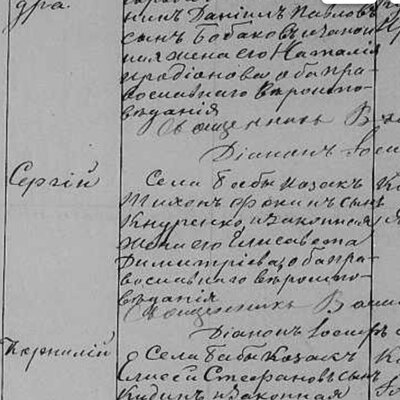 дра.
нинъ Даніилъ Павловъ
сынъ Бобаковъ и закон
ная жена его Наталія
иродіонова, оба пра-
вославнаго вѣроиспо-
вѣданія
Священникъ
Діаконъ Іосиф
Сергій
Села Бабы казакъ
Тихонъ Фокинъ сынъ
Кнуренко и законная
жена его Елисавета
Димитріева, оба пра-
вославнаго вѣроиспо-
вѣданія
Священникъ Васи
Діаконъ Іосифъ
Корнилій
Села Бабы Казакъ
Елисей Стефановъ сынъ
и законная